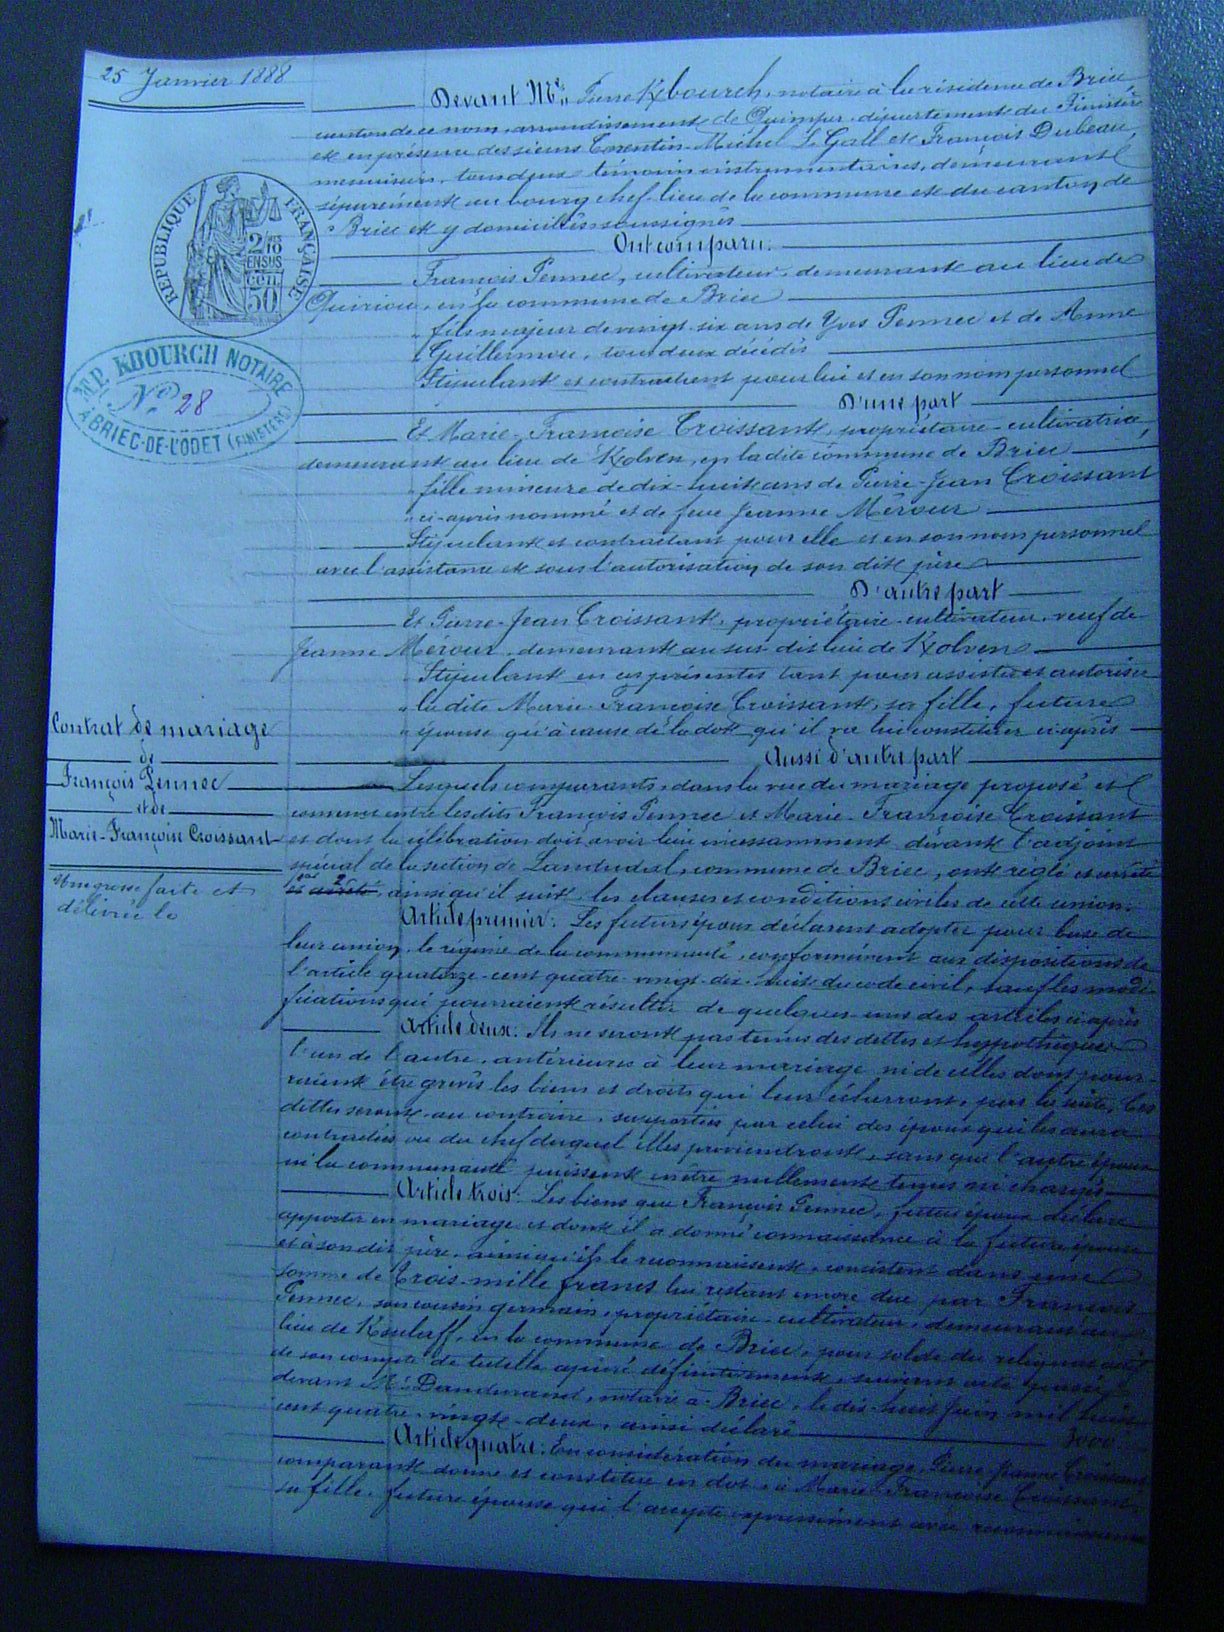 25 Janvier 1888
Devant Me Pierre Kbourch, notaire à la résidence de Briec
canton de ce nom, arrondissement de Quimper, département du Finistère
et en présence des sieurs Corentin-Michel Le Gall et François Dubeau,
menuisiers, tous deux témoins instrumentaires, demeurant
séparément au bourg chef-lieu de la commune et du canton de
Briec et y domiciliés soussignés
Ont comparu:
François Pennec, cultivateur, demeurant au lieu de
Quiriou, en la commune de Briec
fils majeur de vingt-six ans de Yves Pennec et de Anne
Guillermou, tous deux décédés
Stipulant et contractant pour lui et en son nom personnel
D'une part
Et Marie-Françoise Croissant, propriétaire-cultivatrice,
demeurant au lieu de Kolven, en la dite commune de Briec
fille mineure de dix-huit ans de Pierre-Jean Croissant
ci-après nommé et de feue Jeanne Mérour
Stipulant et contractant pour elle et en son nom personnel
avec l'assistance et sous l'autorisation de son dit père
D'autre part
Et Pierre-Jean Croissant, propriétaire-cultivateur, veuf de
Jeanne Mérour, demeurant au sus-dit lieu de Kolven
Stipulant en ces présentes tant pour assister et autoriser
la dite Marie-Françoise Croissant, sa fille, future
épouse qu'à cause de la dot qu'il va lui constituer ci-après
Aussi d'autre part
Lesquels comparants, dans la vue du mariage proposé et
convenu entre les dits François Pennec et Marie-Françoise Croissant
et dont la célébration doit avoir lieu incessamment devant l'adjoint
spécial de la section de Landudal, commune de Briec, ont réglé et arrêté
ainsi qu'il suit les clauses et conditions civiles de cette union.
Article premier: Les futurs époux déclarent adopter pour base de
leur union, le régime de la communauté, conformément aux dispositions de
l'article quatorze-cent quatre-vingt-dix-huit du code civil, sauf les modi-
fications qui pourraient résulter de quelques-uns des articles ci-après
Article deux: Ils ne seront pas tenus des dettes et hypothèques
l'un de l'autre, antérieures à leur mariage ni de celles dont pour-
raient être grevés les biens et droits qui leur écherront, par la suite. Ces
dettes seront au contraire, supportées par celui des époux qui les aura
contractées ou du chef duquel elles proviendront, sans que l'autre époux
ni la communauté puissent en être nullement tenus ni chargés
Article trois: Les biens que François Pennec, futur époux déclare
apporter en mariage et dont il a donné connaissance à la future épouse
et à son dit père, ainsi qu'ils le reconnaissent, consistent dans une
somme de Trois-mille francs lui restant encore due par François
Pennec, son cousin germain, propriétaire-cultivateur, demeurant au
lieu de en la commune de Briec, pour solde du reliquat actif
de son compte de tutelle apuré définitivement, suivant acte passé
devant Me Dandurand, notaire à Briec, le dix-huit Juin mil huit-
cent quatre-vingt-deux, ainsi déclaré 3000
Article quatre: En considération du mariage, Pierre Jean Croissant
comparant donne et constitue en dot, à Marie-Françoise Croissant,
sa fille, future épouse qui l'accepte expressément avec reconnaissance
RÉPUBLIQUE FRANÇAISE
2/10
EN SUS
50
Me P. KBOURCH NOTAIRE
No 28
A BRIEC-DE-L'ODET (FINISTÈRE)
Contrat de mariage
de
François Pennec
et de
Marie-Françoise Croissant
Une grosse faite et
délivrée le